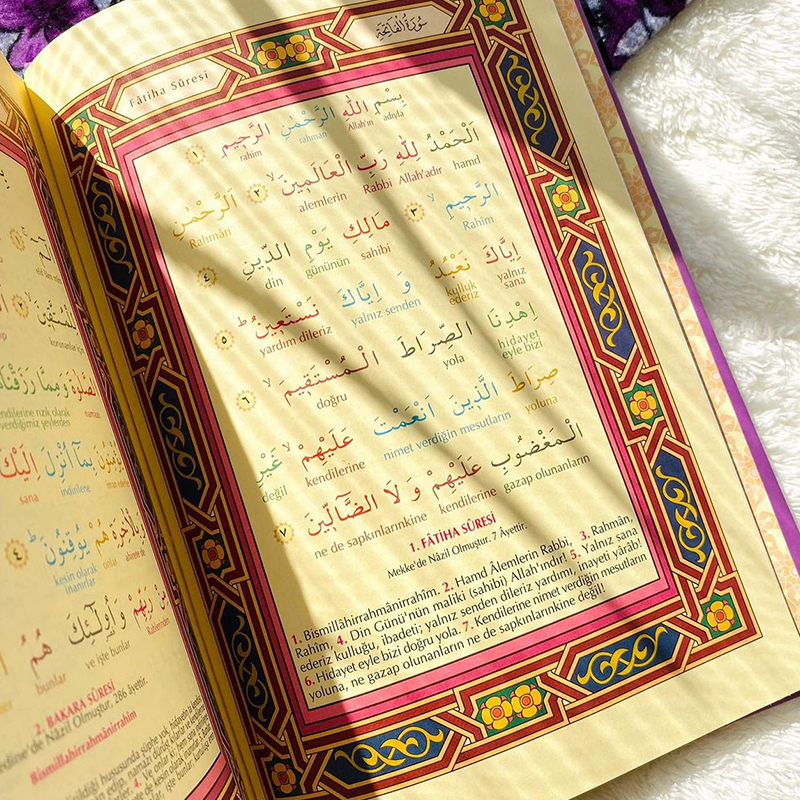 Fâtiha Sûresi
سُورَةُ الْفَاتِحَةِ
بِسْمِ اللّٰهِ الرَّحْمٰنِ الرَّحِيمِ ١
adıyla Allah'ın rahman rahim
اَلْحَمْدُ لِلّٰهِ رَبِّ الْعَالَمِينَ ٢ اَلرَّحْمٰنِ
hamd Allah'adır Rabbi alemlerin Rahmân
الرَّحِيمِ ٣ مَالِكِ يَوْمِ الدِّينِ ٤
Rahîm sahibi gününün din
اِيَّاكَ نَعْبُدُ وَ اِيَّاكَ نَسْتَعِينُ ٥
yalnız sana kulluk ederiz yalnız senden yardım dileriz
اِهْدِنَا الصِّرَاطَ الْمُسْتَقِيمَ ٦
hidayet eyle bizi yola doğru
صِرَاطَ الَّذِينَ اَنْعَمْتَ عَلَيْهِمْ غَيْرِ
yoluna nimet verdiğin mesutların kendilerine değil
الْمَغْضُوبِ عَلَيْهِمْ وَ لَا الضَّالِّينَ ٧
gazap olunanların kendilerine ne de sapkınlarınkine
1. FÂTİHA SÛRESİ
Mekke'de Nâzil Olmuştur. 7 Âyettir.
1. Bismillâhirrahmânirrahîm. 2. Hamd Âlemlerin Rabbi, 3. Rahmân,
Rahîm, 4. Din Günü'nün maliki (sahibi) Allah'ındır! 5. Yalnız sana
ederiz kulluğu, ibadeti; yalnız senden dileriz yardım, inayeti yârâb!
6. Hidayet eyle bizi doğru yola. 7. Kendilerine nimet verdiğin mesutların
yoluna, ne gazap olunanların ne de sapkınlarınkine değil!
لِلْمُتَّقِينَ
الصَّلٰوةَ وَمِمَّا رَزَقْنَا
namazı kendilerine rızık olarak verdiğimiz şeylerden
بِمَا اُنْزِلَ اِلَيْكَ
indirilene sana
هُمْ يُوقِنُونَ ٤
onlar kesin olarak inanırlar
مِنْ رَبِّهِمْ وَاُولٰٓئِكَ هُمُ
Rablerinden ve işte bunlar bunlar
2. BAKARA SÛRESİ
Nâzil Olmuştur, 286 âyettir.
Bismillahirrahmânirrahîm